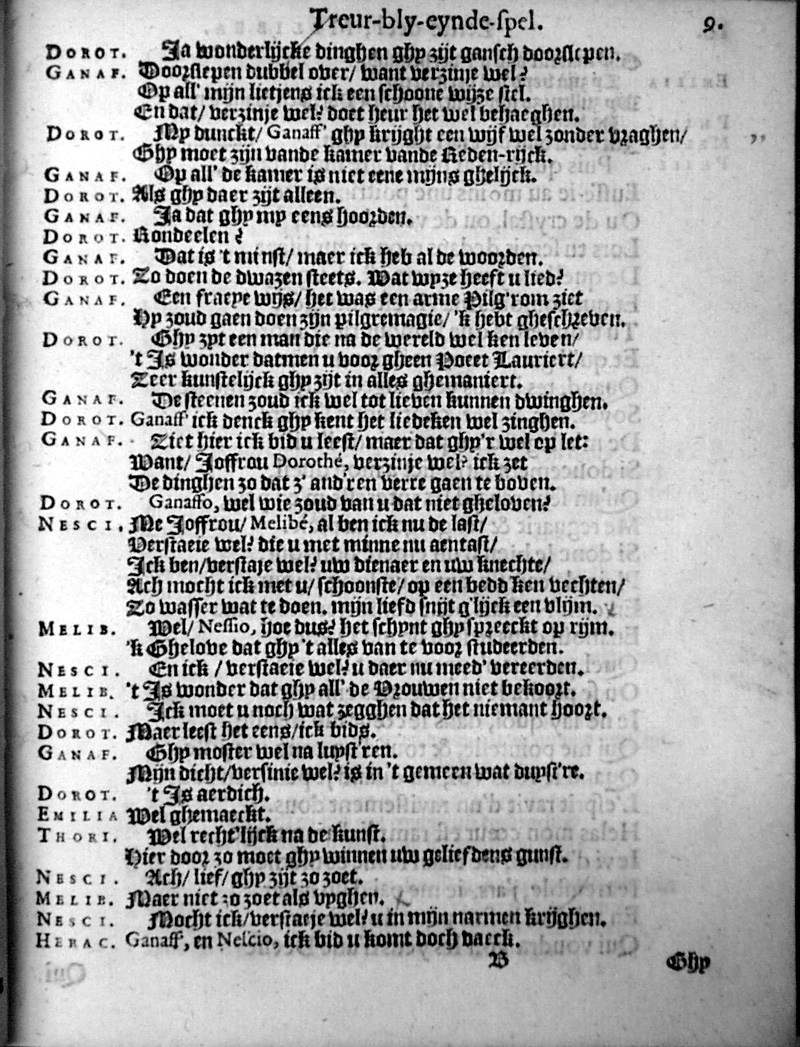 Treur-bly-eynde-spel. 9.
DOROT. Ja wonderlijcke dinghen ghy zijt gansch doorslepen.
GANAF. Doorslepen dubbel over/ want verzinje wel?
Op all' mijn lietjens ick een schoone wijze stel.
En dat/ verzinje wel? doet heur het wel behaeghen.
DOROT. My dunckt/ Ganaff' ghy krijght een wijf wel zonder vraghen/
Ghy moet zijn vande kamer vande Reden-rijck.
GANAF. Op all' de kamer is niet eene mijns ghelijck.
DOROT. Als ghy daer zijt alleen.
GANAF. Ja dat ghy my eens hoorden.
DOROT. Rondeelen?
GANAF. Dat is 't minst/ maer ick heb al de woorden.
DOROT. Zo doen de dwazen steets. Wat wyze heeft u lied?
GANAF. Een fraeye wijs/ het was een arme Pilg'rom ziet
Hy zoud gaen doen zijn pilgremagie/ 'k hebt gheschreven.
DOROT. Ghy zyt een man die na de wereld wel ken leven/
't Is wonder datmen u voor gheen Poeet Lauriert/
Zeer kunstelijck ghy zijt in alles ghemaniert.
GANAF. De steenen zoud ick wel tot lieven kunnen dwinghen.
DOROT. Ganaff' ick denck ghy kent het liedeken wel zinghen.
GANAF. Ziet hier ick bid u leest/ maer dat ghy'r wel op let:
Want/ Joffrou Dorothé, verzinje wel? ick zet
De dinghen zo dat z' and'ren verre gaen te boven.
DOROT. Ganaffo, wel wie zoud van u dat niet gheloven?
NESCI. Me Joffrou/ Melibé, al ben ick nu de last/
Verstaeie wel? die u met minne nu aentast/
Ick ben/ verstaje wel? uw dienaer en uw knechte/
Ach mocht ick met u/ schoonste/ op een bedd ken vechten/
Zo wasser wat te doen. mijn liefd snijt g'lijck een vlijm.
MELIB. Wel/ Nessio, hoe dus? het schynt ghy spreeckt op rijm.
'k Ghelove dat ghy 't alles van te voor studeerden.
NESCI. En ick / verstaeie wel? u daer nu meed' vereerden.
MELIB. 't Is wonder dat ghy all' de Vrouwen niet bekoort.
NESCI. Ick moet u noch wat zegghen dat het niemant hoort.
DOROT. Maer leest het eens/ ick bids.
GANAF. Ghy moster wel na luyst'ren.
Mijn dicht/ versinie wel? is in 't gemeen wat duyst're.
DOROT. 't Is aerdich.
EMILIA Wel ghemaeckt.
THORI. Wel recht'lijck na de kunst.
Hier door zo moet ghy winnen uw geliefdens gunst.
NESCI. Ach/ lief/ ghy zijt zo zoet.
MELIB. Maer niet zo zoet als vyghen.
NESCI. Mocht ick/ verstaeje wel? u in mijn narmen krijghen.
HERAC. Ganaff', en Nescio, ick bid u komt doch daeck.
B Ghy